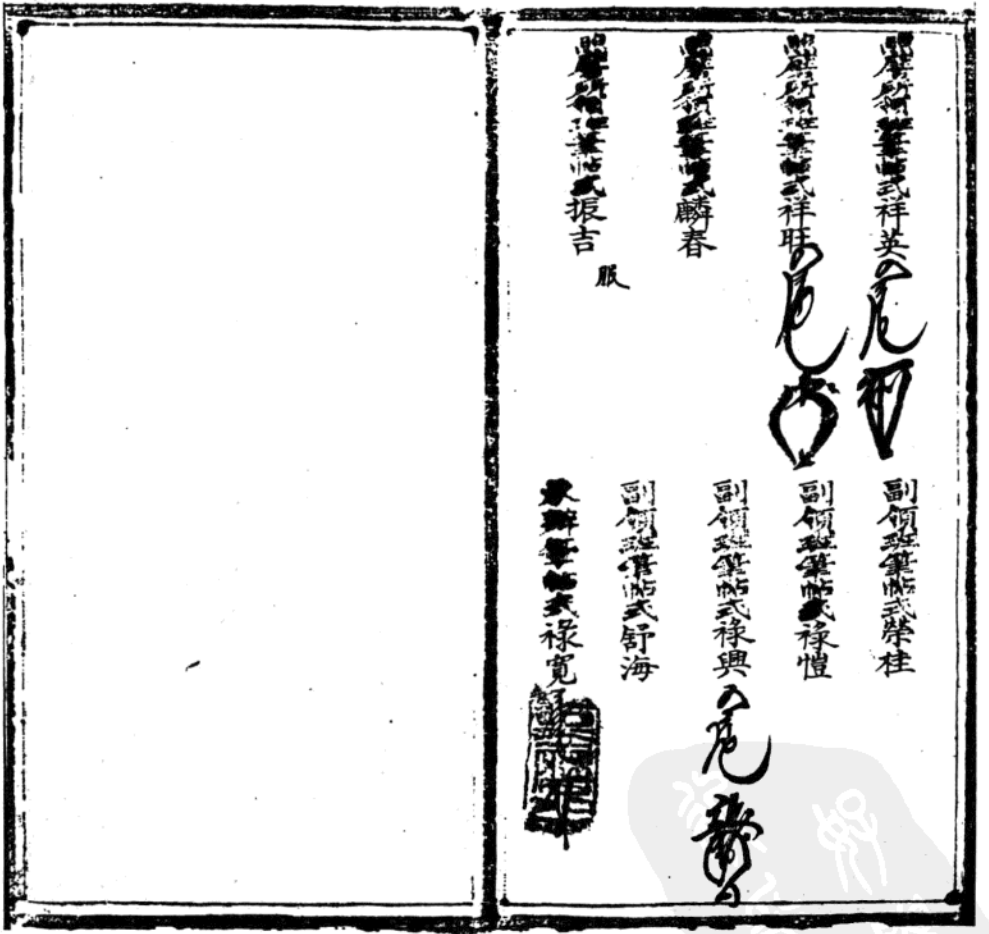 照磨所領班筆帖式祥英
照磨所領班筆帖式祥旺
照磨所領班筆帖式麟春
照磨所領班筆帖式振吉
服
副領班筆帖式榮桂
副領班筆帖式祿愷
副領班筆帖式祿興
副領班筆帖式舒海
承辦筆帖式祿寬